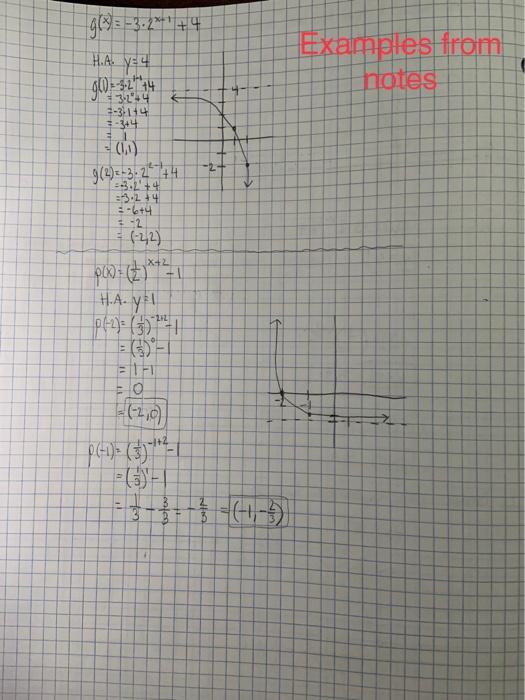 g(x) = -3·2^(x-1) + 4
Examples from
notes
H.A. y=4
g(1) = -3·2^(1-1) +4
= -3·2^0 +4
= -3·1+4
= -3+4
= 1
= (1,1)
g(2) = -3·2^(2-1) +4
= -3·2^1 +4
= -3·2 +4
= -6+4
= -2
= (-2,2)
4
1
-2
p(x) = (1/2)^(x+2) -1
H.A. y=1
p(-2) = (1/3)^(-2+2) -1
= (1/3)^0 -1
= 1-1
= 0
= (-2,0)
-2
-1
-1
p(-1) = (1/3)^(-1+2) -1
= (1/3)^1 -1
= 1/3 - 3/3 = -2/3 = (-1, -2/3)